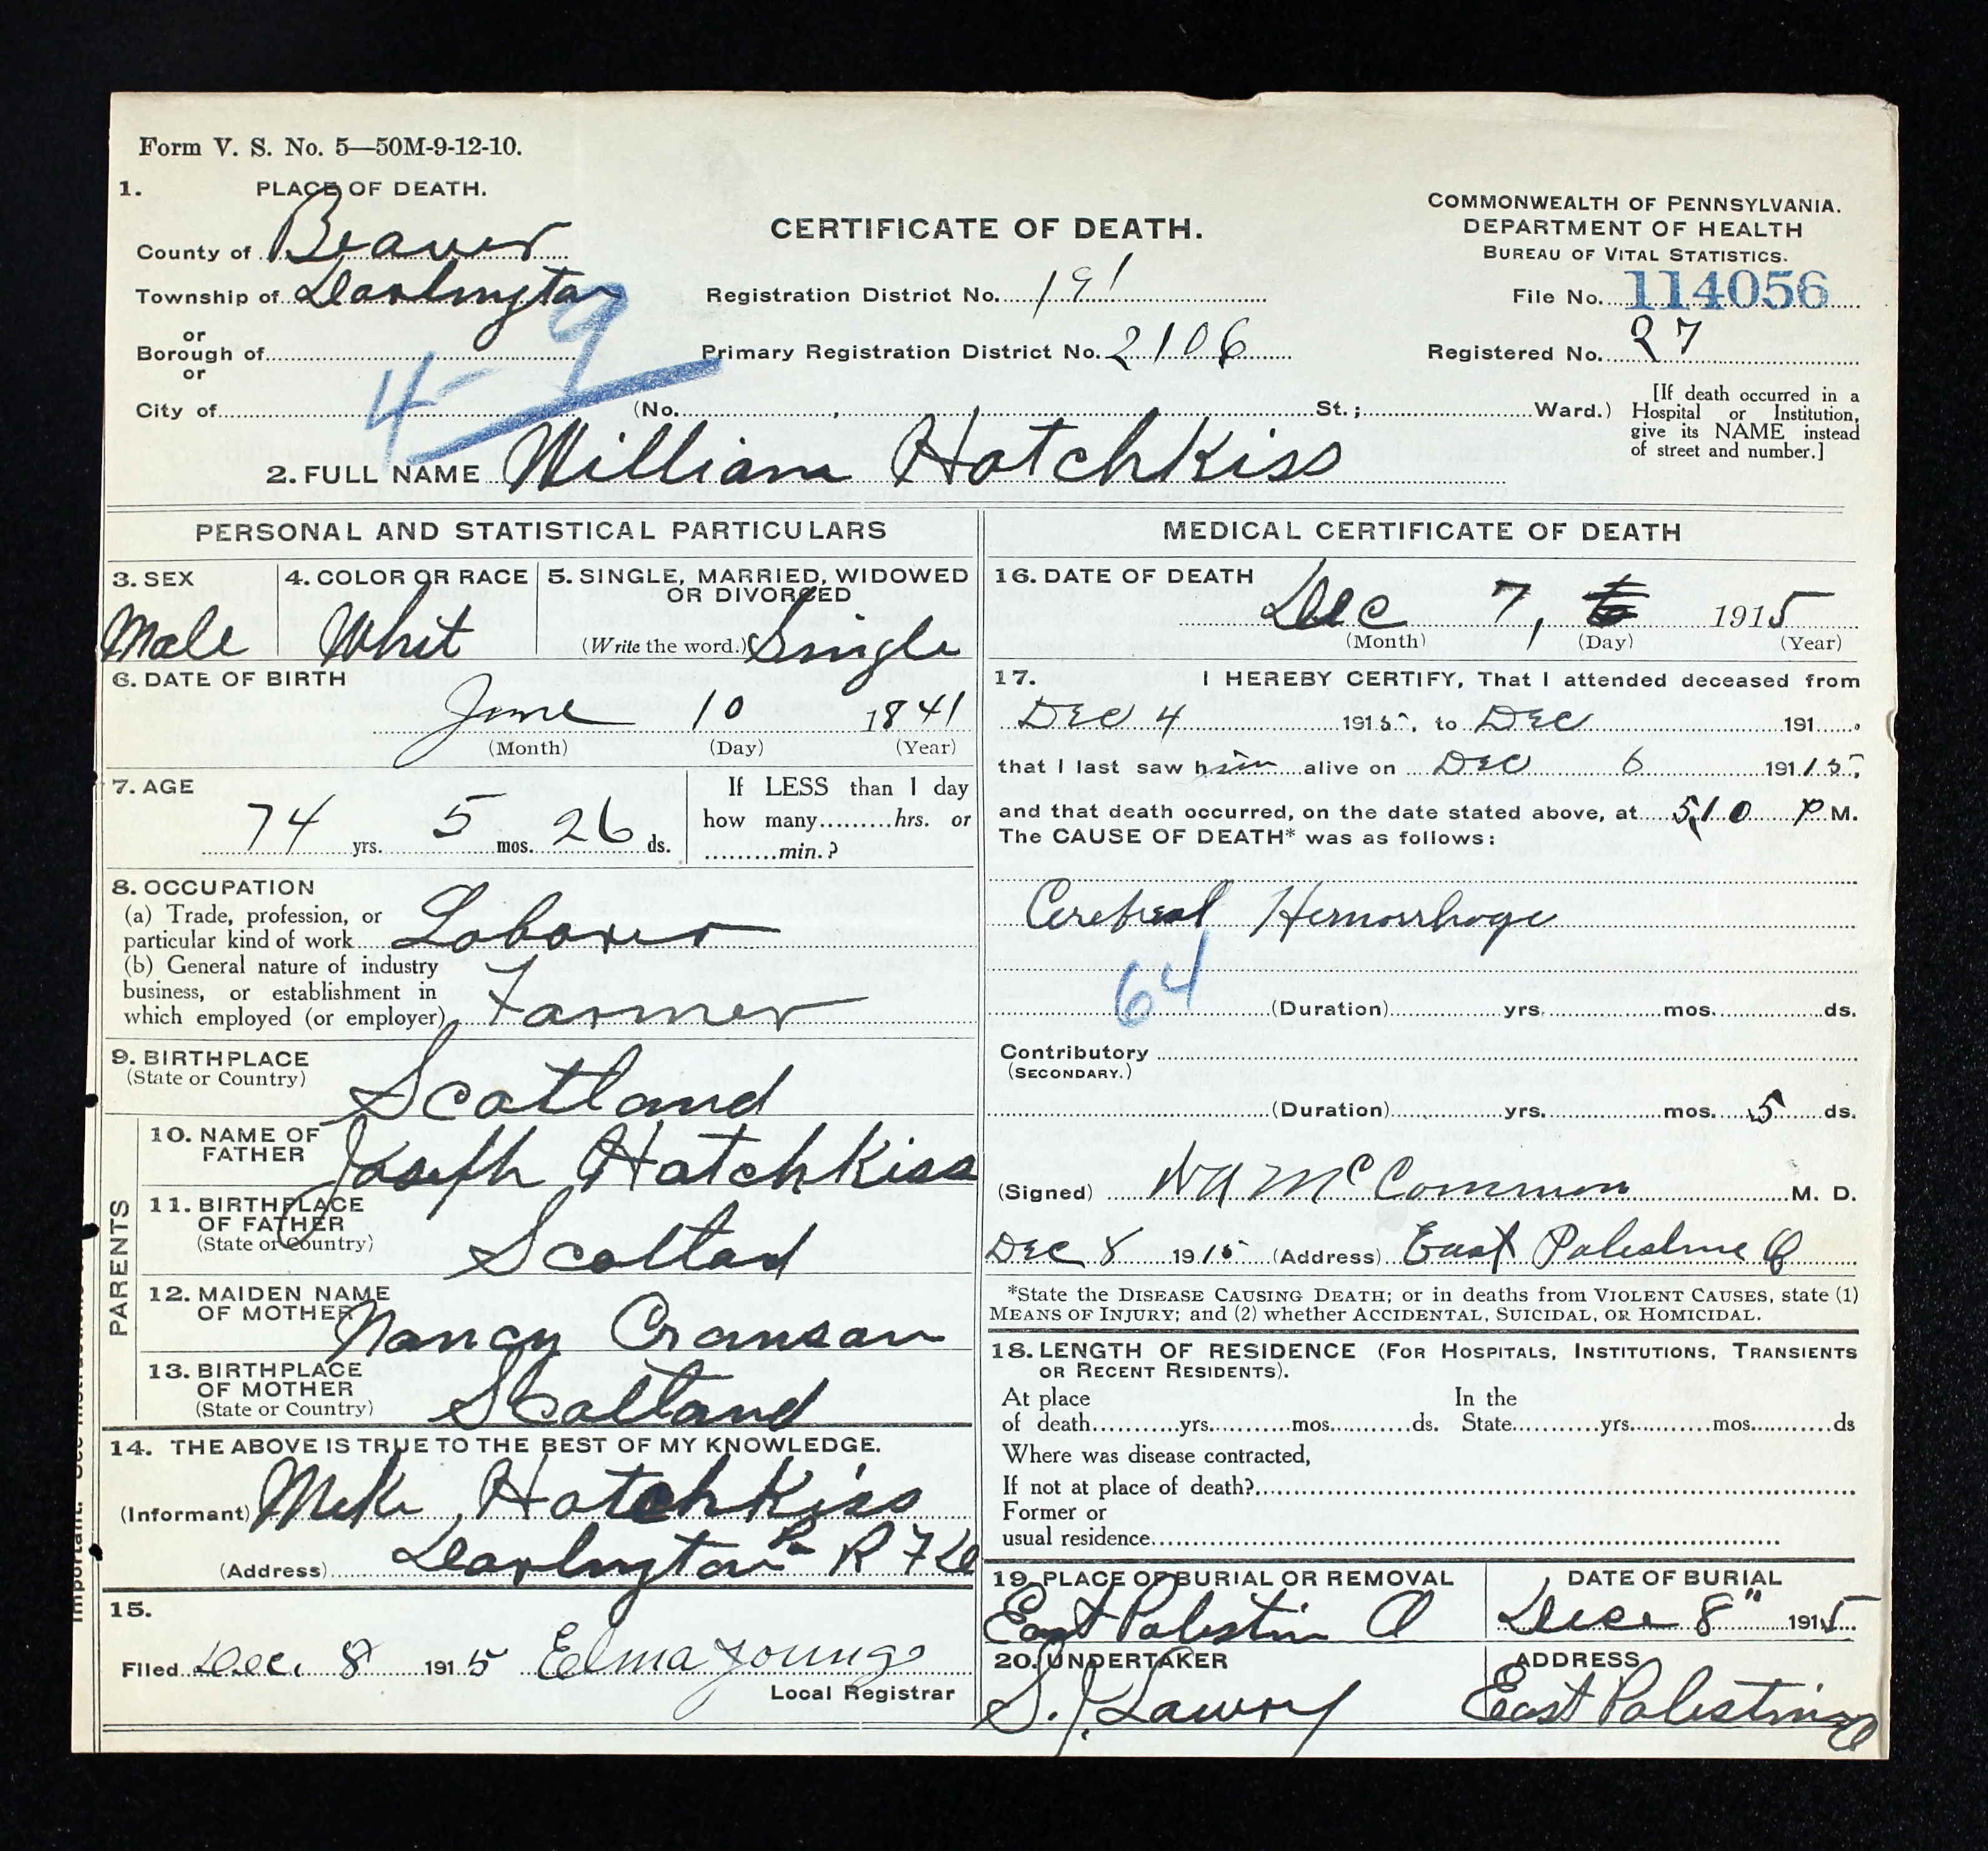 Form V. S. No. 5—50M-9-12-10.
1. PLACE OF DEATH.
County of Beaver
Township of Darlington
or
Borough of
or
City of
4-9
CERTIFICATE OF DEATH.
Registration District No. 191
Primary Registration District No. 2106
(No. , St.; Ward.)
COMMONWEALTH OF PENNSYLVANIA.
DEPARTMENT OF HEALTH
BUREAU OF VITAL STATISTICS.
File No. 114056
Registered No. 27
[If death occurred in a
Hospital or Institution,
give its NAME instead
of street and number.]
2. FULL NAME William Hotchkiss
PERSONAL AND STATISTICAL PARTICULARS
3. SEX
Male
4. COLOR OR RACE
Whit
5. SINGLE, MARRIED, WIDOWED
OR DIVORCED
(Write the word.) Single
6. DATE OF BIRTH
June 10 1841
(Month) (Day) (Year)
7. AGE
74 yrs. 5 mos. 26 ds.
If LESS than 1 day
how many hrs. or
min.?
8. OCCUPATION
(a) Trade, profession, or
particular kind of work Laborer
(b) General nature of industry
business, or establishment in
which employed (or employer) Farmer
9. BIRTHPLACE
(State or Country) Scotland
PARENTS
10. NAME OF
FATHER Joseph Hotchkiss
11. BIRTHPLACE
OF FATHER
(State or Country) Scotlad
12. MAIDEN NAME
OF MOTHER Nancy
13. BIRTHPLACE
OF MOTHER
(State or Country) Scotland
14. THE ABOVE IS TRUE TO THE BEST OF MY KNOWLEDGE.
(Informant) Mike Hotchkiss
(Address) Darlington Pa R F D
15.
Filed Dec. 8 1915 Elma Young
Local Registrar
MEDICAL CERTIFICATE OF DEATH
16. DATE OF DEATH
Dec 7, 1915
(Month) (Day) (Year)
17. I HEREBY CERTIFY, That I attended deceased from
Dec 4 1915, to Dec 191
that I last saw him alive on Dec 6 191 15,
and that death occurred, on the date stated above, at 5,10 P M.
The CAUSE OF DEATH* was as follows:
Cerebral Hemorrhage
64
(Duration) yrs. mos. ds.
Contributory
(SECONDARY.)
(Duration) yrs. mos. 5 ds.
(Signed) W A McCommon M. D.
Dec 8 1915 (Address) East Palestine O
*State the DISEASE CAUSING DEATH; or in deaths from VIOLENT CAUSES, state (1)
MEANS OF INJURY; and (2) whether ACCIDENTAL, SUICIDAL, OR HOMICIDAL.
18. LENGTH OF RESIDENCE (FOR HOSPITALS, INSTITUTIONS, TRANSIENTS
OR RECENT RESIDENTS).
At place In the
of death yrs. mos. ds. State yrs. mos. ds
Where was disease contracted,
If not at place of death?
Former or
usual residence
19. PLACE OF BURIAL OR REMOVAL
East Palestin O
DATE OF BURIAL
Dec 8" 1915
20. UNDERTAKER
S. J. Lawry
ADDRESS
East Palestine O